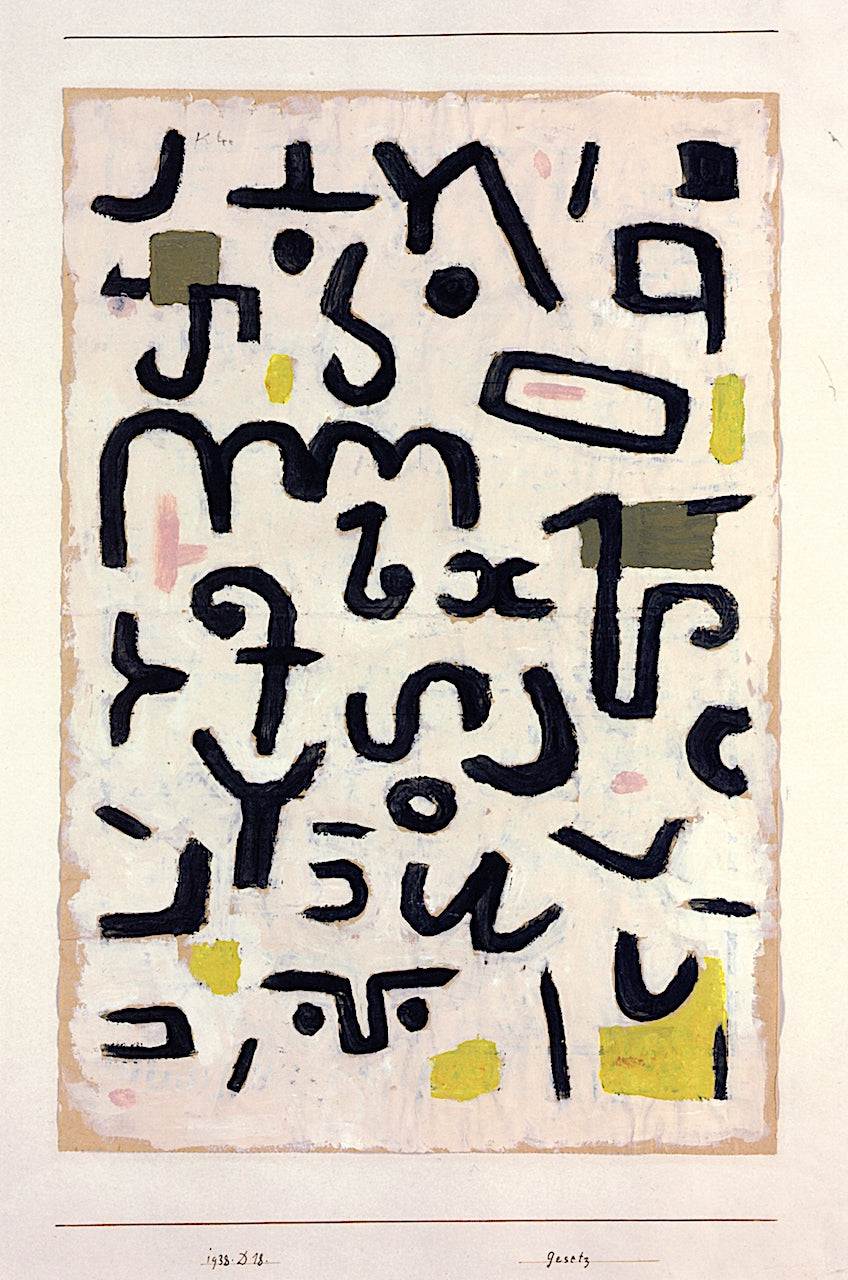 Klee
1938. D 18. Gesetz